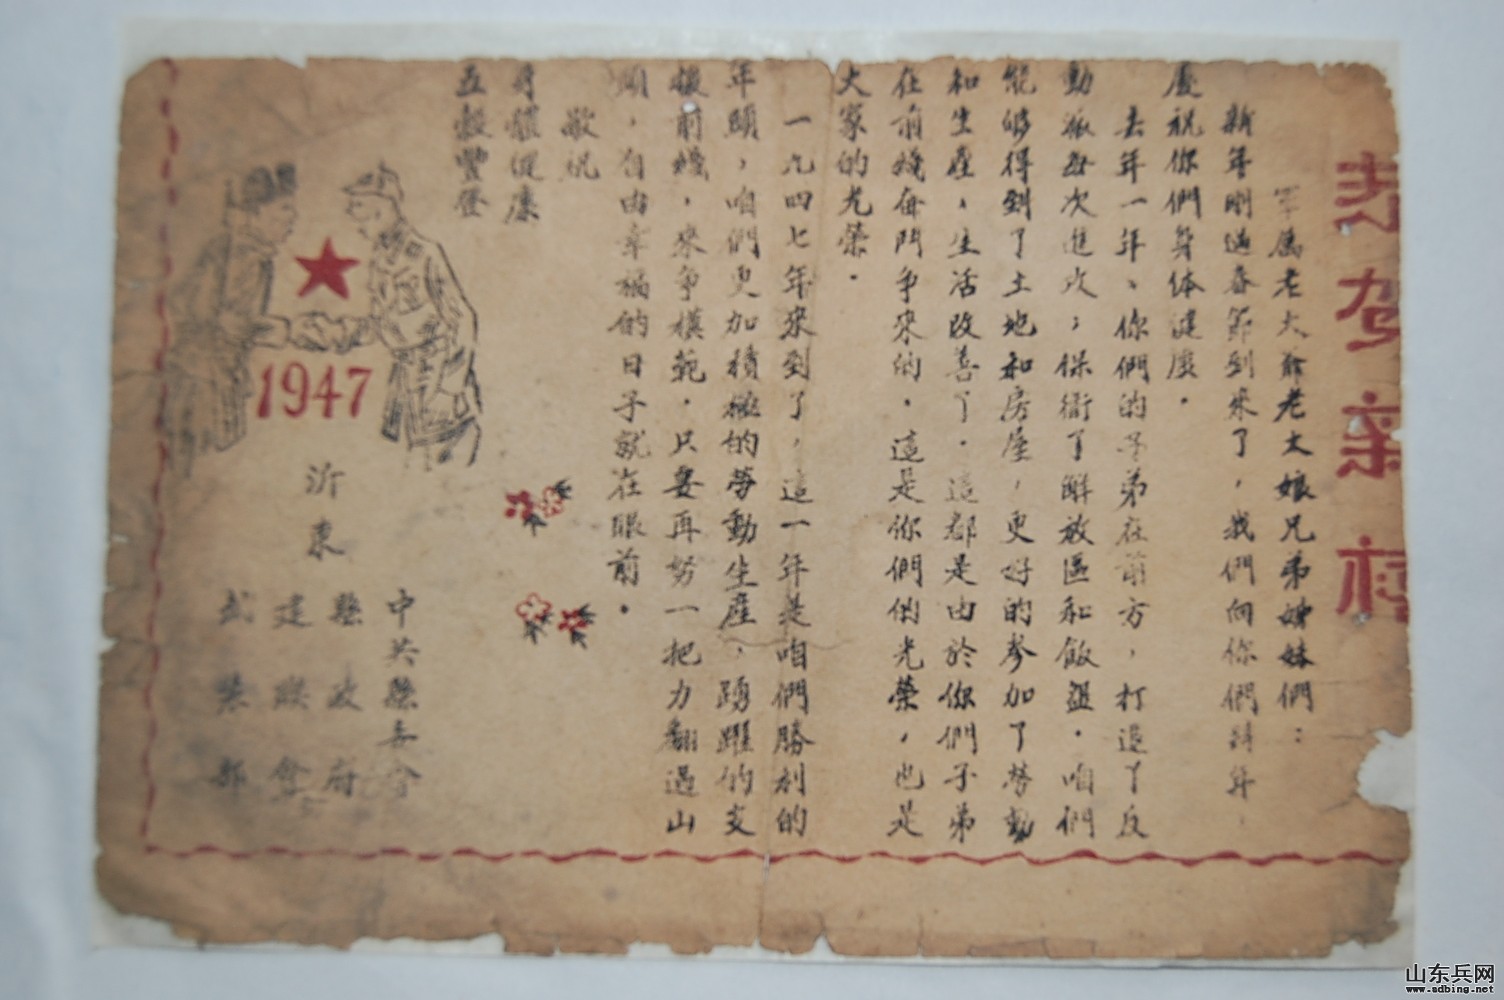 恭贺新禧
軍属老大爺老大娘兄弟姊妹們：
新年剛過春節到來了，我們向你們拜年，
慶祝你們身体健康。
去年一年、你們的子弟在前方，打退了反
動派每次進攻；保衛了解放區和飯盌。咱們
能够得到了土地和房屋，更好的参加了勞動
和生產，生活改善了。這都是由於你們子弟
在前綫奋鬥争來的。這是你們的光榮，也是
大家的光榮。
一九四七年來到了，這一年是咱們勝利的
年頭，咱們更加積極的勞動生産，踴躍的支
援前綫，來争模範。只要再努一把力翻過山
頭，自由幸福的日子就在眼前。
敬祝
身體健康
五穀豐登
1947
沂東
中共縣委會
縣政府
建聯會
武裝部
山东兵网
www.sdbing.net